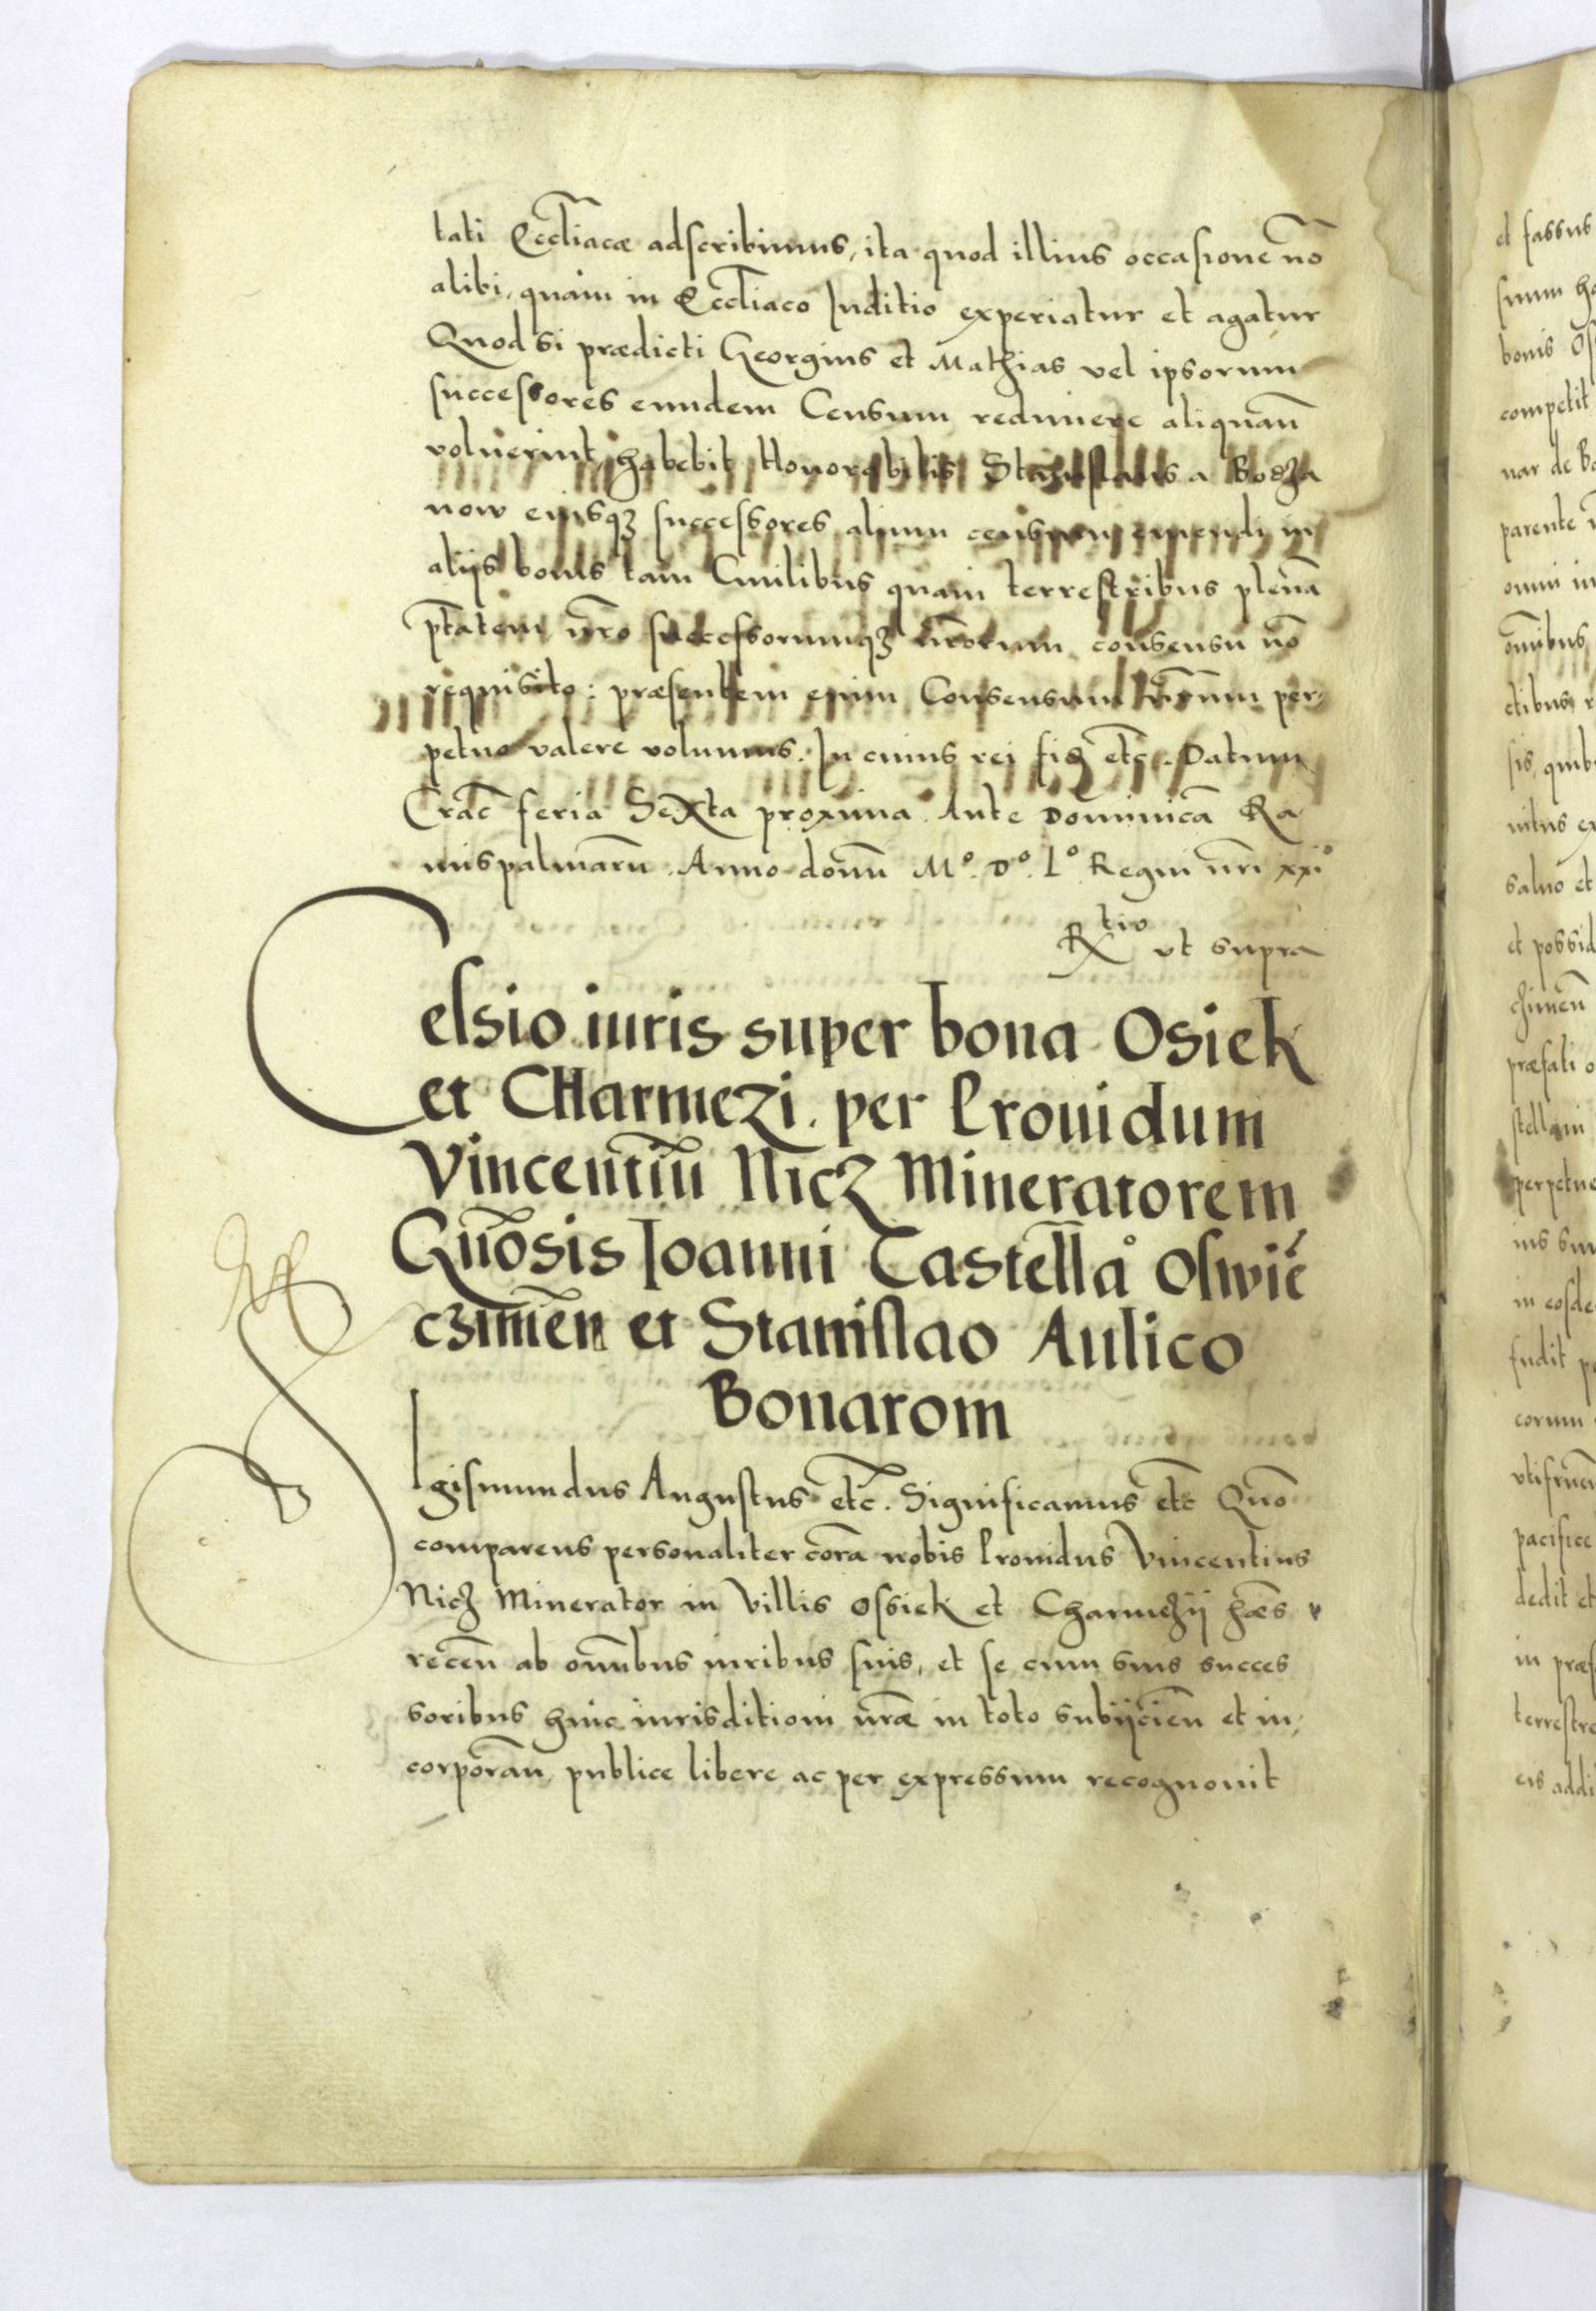 tati Eccl̃iacæ adscribimus, ita quod illius occasione nõ
alibi, quam in Eccl̃iaco Iuditio experiatur et agatur
Quod si prædicti Georgius et Mathias vel ipsorum
successores eundem Censum redimere aliquañ
voluerint, habebit Honorabilis Stanislaus a Bodza
now eiusqȝ successores alium censum emendi in
aliis bonis tam Ciuilibus quam terrestribus plenã
ptãtem, nr̃o successorumqȝ nr̃orum consensu nõ
requisito: præsentem enim Consensum nr̃um per,
petuo valere volumus. In cuius rei fidȝ etc̃. Datum
Crac̃ feria Sexta proxima Ante Dominicã Ra
mispalmarũ. Anno domĩ Mº. Dº. Lº. Regni nr̃i xxiº
Rtio vt supra
Celsio iuris super bona Osiek
et CHarmezi. per Prouidum
Vincentiũ Nicz Mineratorem
Gñosis Ioanni Castellãº Oswiẽ
czimeñ et Stanislao Aulico
Bonarom
SIgismundus Augustus etc̃. Significamus etc̃ Quõ
comparens personaliter corã nobis Prouidus Vincentius
Nicz Minerator in Villis Ossiek et Charmezii hæ̃s
receñ ab omñibus iuribus suis, et se cum suis succes
soribus huic iurisditioni nr̃æ in toto subiicieñ et in,
corporañ, publice libere ac per expressum recognouit
et fassus
suum ha
bonis Os
competit
nar de Bo
parente
omni iu
om̃ibus
ctibus, r
sis, quib
nitus ex
saluo et
et possid
præfati o
perpetue
ius suu
in eosde
fudit pe
corum
pacifice
dedit et
in præs
terrestre
eis addi